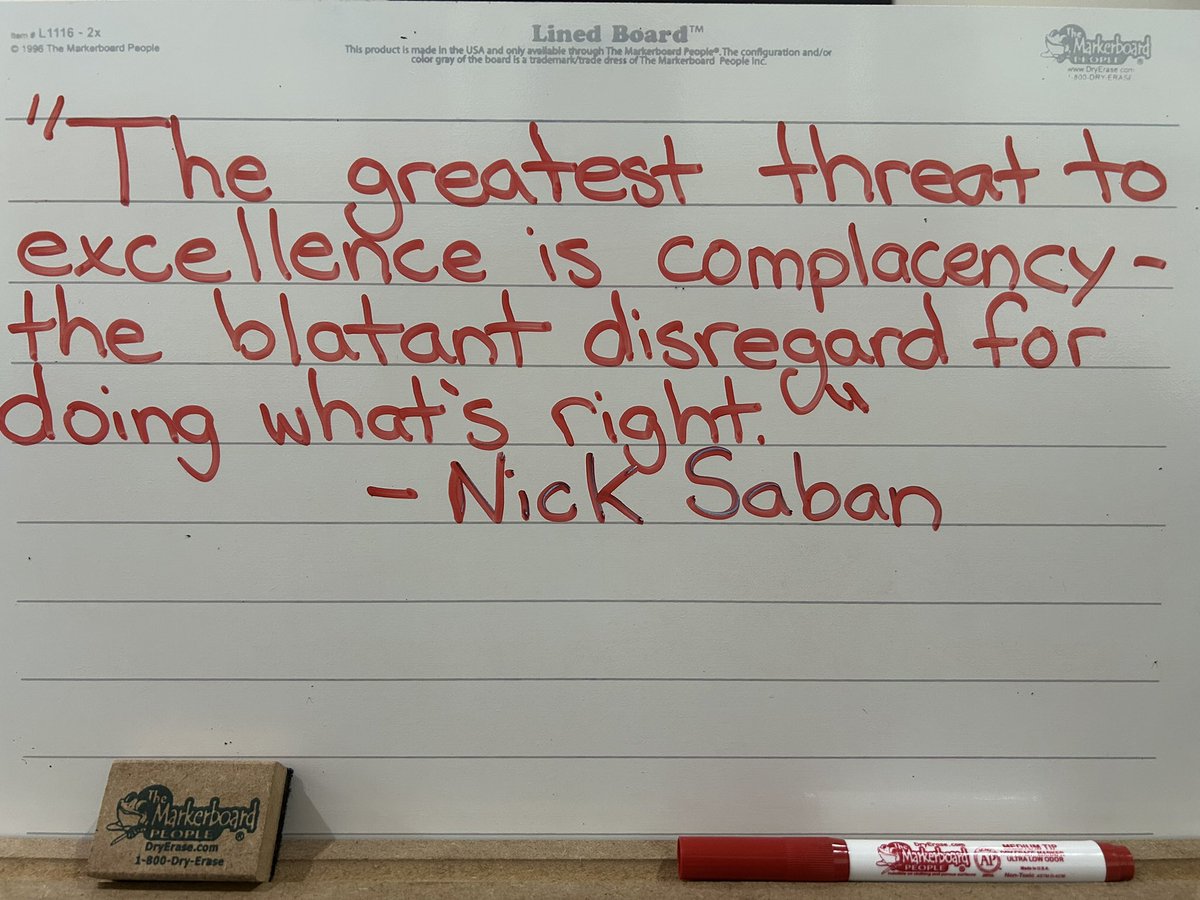 Item # L1116 - 2x
© 1996 The Markerboard People
Lined Board™
This product is made in the USA and only available through The Markerboard People®. The configuration and/or
color gray of the board is a trademark/trade dress of The Markerboard People Inc.
The
Markerboard
PEOPLE
www.DryErase.com
1-800-DRY-ERASE
"The greatest threat to
excellence is complacency -
the blatant disregard for
doing what's right."
- Nick Saban
The
Markerboard
PEOPLE®
DryErase.com
1-800-Dry-Erase
DryErase.com
The
Markerboard
PEOPLE
AP
MEDIUM TIP
DRY ERASE MARKER
ULTRA LOW ODOR
Made in U.S.A.
Non-Toxic